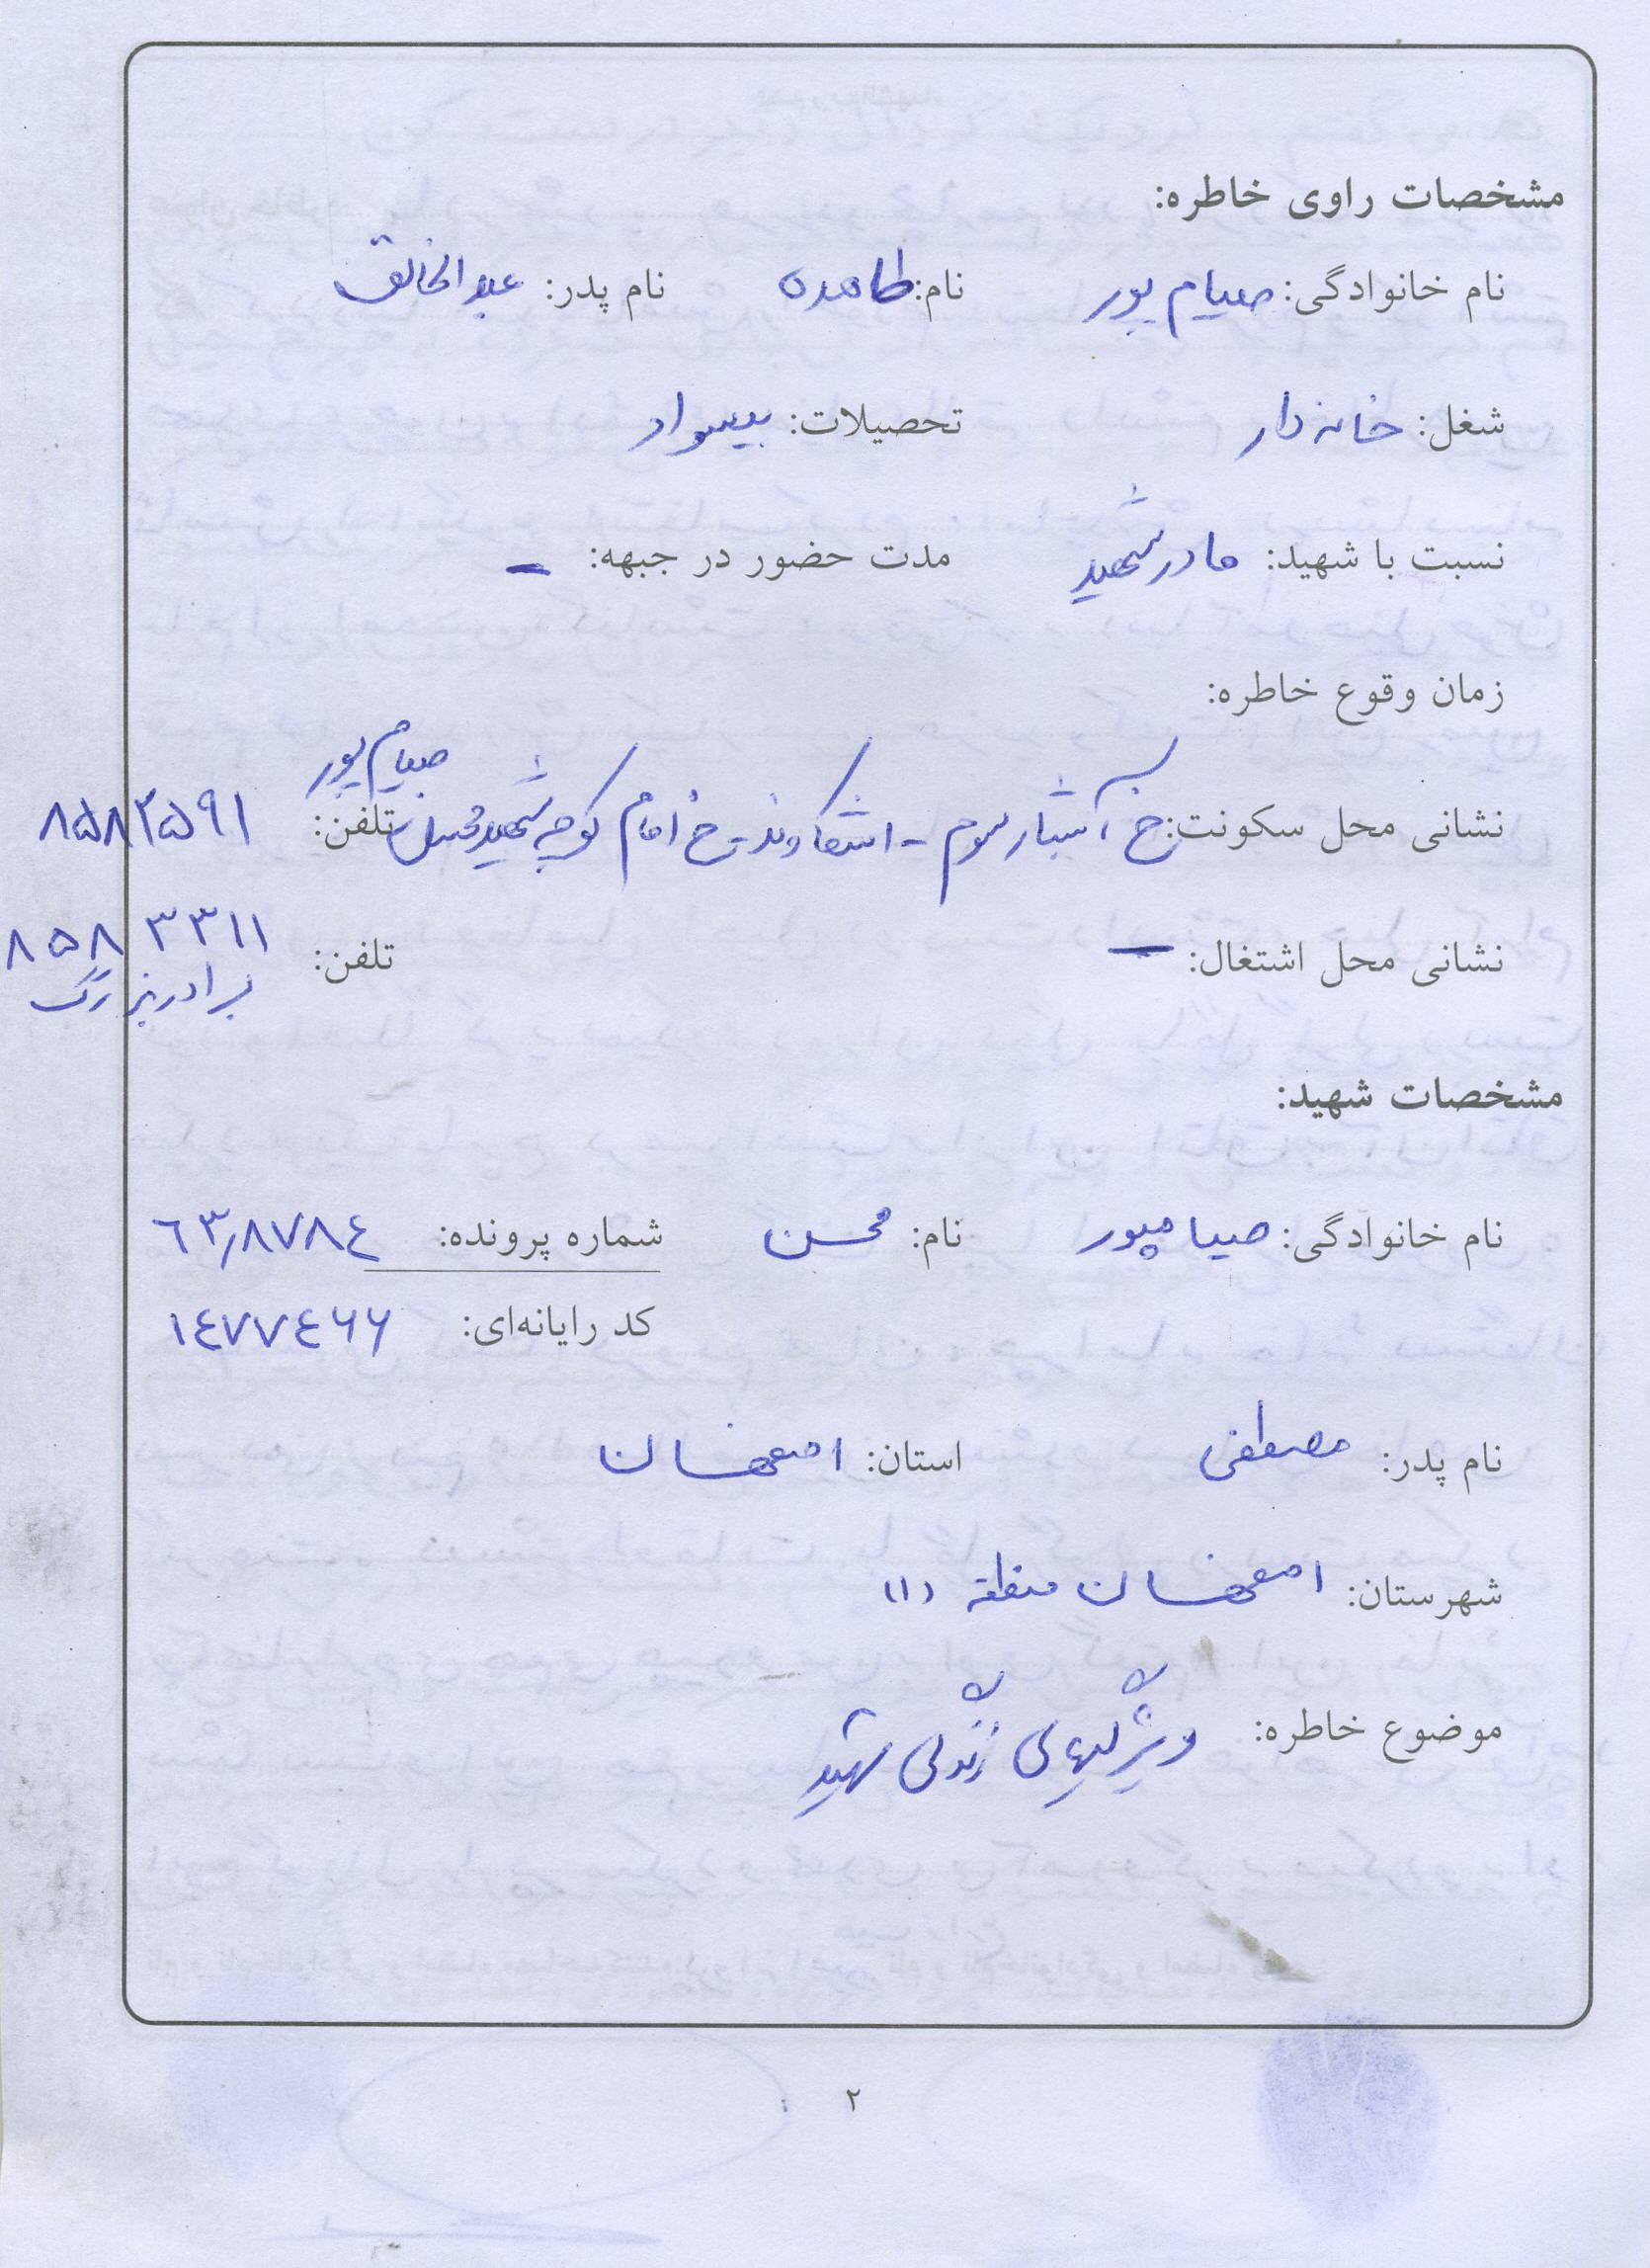 مشخصات راوی خاطره:
نام خانوادگی: صیام پور نام: طاهره نام پدر: عبدالخالق
شغل: خانه دار تحصیلات: بیسواد
نسبت با شهید: مادر شهید مدت حضور در جبهه: -
زمان وقوع خاطره:
صیام پور
نشانی محل سکونت: خ آتشبار سوم - اشکاوند - خ امام کوچه شهید محسن تلفن: ۸۵۸۲۵۹۱
نشانی محل اشتغال: - تلفن: ۸۵۸۳۳۱۱
برادر بزرگ
مشخصات شهید:
نام خانوادگی: صیامپور نام: محسن شماره پرونده: ٦٣٫٨٧٨٤
کد رایانه‌ای: ۱٤۷۷٤۶۶
نام پدر: مصطفی استان: اصفهان
شهرستان: اصفهان منطقه (۱)
موضوع خاطره: ویژگیهای زندگی شهید
۲